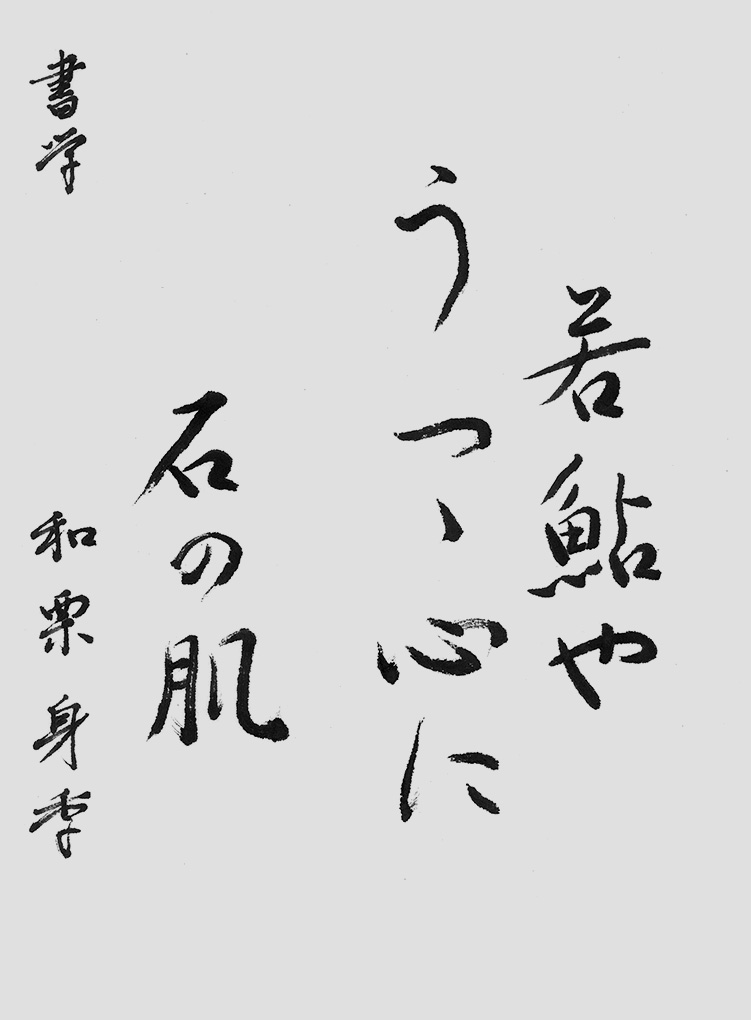 若鮎や
うつゝ心に
石の肌
書学
和栗身李